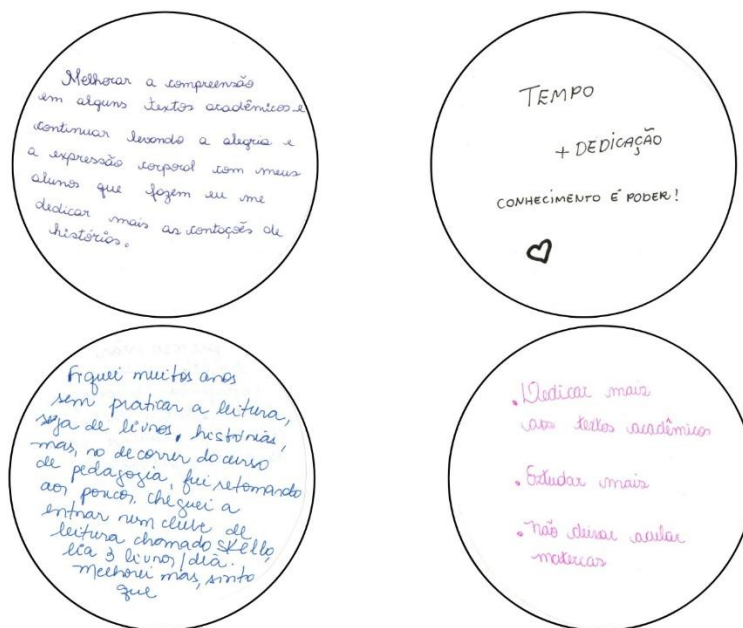 Melhorar a compreensão
em alguns textos acadêmicos e
continuar levando a alegria e
a expressão corporal com meus
alunos que fazem eu me
dedicar mais as contações de
histórias.
TEMPO
+ DEDICAÇÃO
CONHECIMENTO É PODER!
Fiquei muitos anos
sem praticar a leitura,
seja de livros, histórias,
mas, no decorrer do curso
de pedagogia, fui retomando
aos poucos, cheguei a
entrar num clube de
leitura chamado Skello,
lia 3 livros/dia.
Melhorei mas, sinto
que
. Dedicar mais
aos textos acadêmicos
. Estudar mais
. não deixar
materias